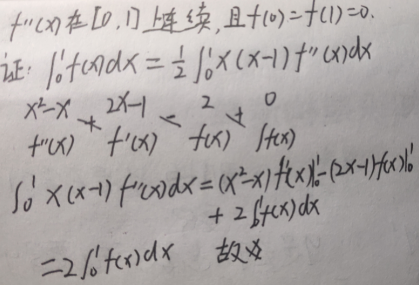 f''(x)在[0,1]上连续,且f(0)=f(1)=0.
证: ∫₀¹f(x)dx=½∫₀¹x(x-1)f''(x)dx
x²-x + 2x-1 - 2 + 0
f''(x) f'(x) f(x) ∫f(x)
∫₀¹x(x-1)f''(x)dx=(x²-x)f'(x)|₀¹-(2x-1)f(x)|₀¹
+2∫₀¹f(x)dx
=2∫₀¹f(x)dx 故